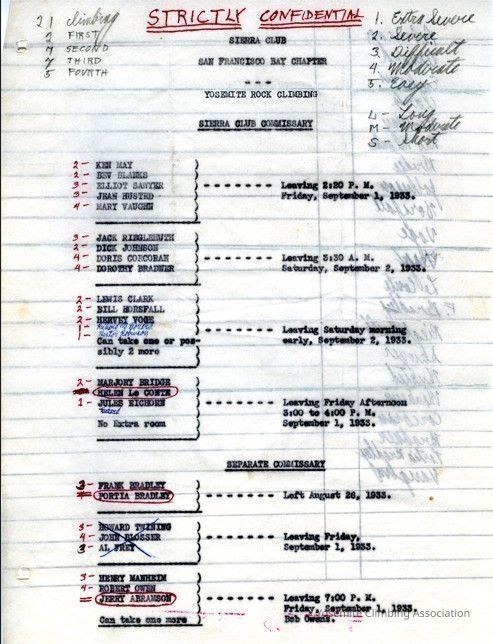 STRICTLY CONFIDENTIAL
21 climbing
7 FIRST
7 SECOND
7 THIRD
5 FOURTH
1. Extra Severe
2. Severe
3. Difficult
4. Moderate
5. Easy
L - Long
M - Moderate
S - Short
SIERRA CLUB
SAN FRANCISCO BAY CHAPTER
- - -
YOSEMITE ROCK CLIMBING
SIERRA CLUB COMMISSARY
2 - KEN MAY
2 - BEV BLANKS
3 - ELLIOT SAWYER
3 - JEAN HUSTED
4 - MARY VAUGHN
Leaving 2:20 P. M.
Friday, September 1, 1933.
3 - JACK RIEGLEHUTH
2 - DICK JOHNSON
4 - DORIS CORCORAN
4 - DOROTHY BRADNER
Leaving 3:30 A. M.
Saturday, September 2, 1933.
2 - LEWIS CLARK
2 - BILL HORSFALL
2 - HERVEY VOGE
1 -
Can take one or pos-
sibly 2 more
Leaving Saturday morning
early, September 2, 1933.
2 - MARJORY BRIDGE
HELEN Le CONTE
1 - JULES EICHORN
No Extra room
Leaving Friday Afternoon
3:00 to 4:00 P. M.
September 1, 1933.
SEPARATE COMMISSARY
3 - FRANK BRADLEY
PORTIA BRADLEY
Left August 26, 1933.
3 - HOWARD TWINING
4 - JOHN BLOSSER
3 - AL FREY
Leaving Friday,
September 1, 1933.
3 - HENRY MANHEIM
4 - ROBERT OWEN
JERRY ABRAMSON
Can take one more
Leaving 7:00 P. M.
Friday, September 1, 1933.
Bob Owens.
Yosemite Climbing Association